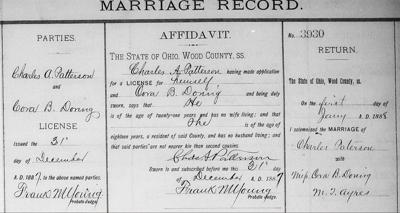 MARRIAGE RECORD.
PARTIES.
Charles A. Patterson
and
Cora B. Doning
LICENSE
Issued the 31st
day of December
A. D. 1887, to the above named parties.
Frank M Young
Probate Judge.
AFFIDAVIT.
THE STATE OF OHIO, WOOD COUNTY, SS.
Charles A. Patterson having made application
for a LICENSE for himself
and Cora B. Doning and being duly
sworn, says that He
is of the age of twenty-one years and has no wife living; and that
She is of the age of
eighteen years, a resident of said County, and has no husband living; and
that said parties are not nearer kin than second cousins
Chas A Patterson
Sworn to and subscribed before me this 31st
day of December A. D. 1887
Frank M Young
Probate Judge.
No. 3930
RETURN.
The State of Ohio, Wood County, ss.
On the first day of
Jany A. D. 1888
I solemnized the MARRIAGE of
Charles Paterson
with
Miss Cora B. Doning
M. T. Ayres